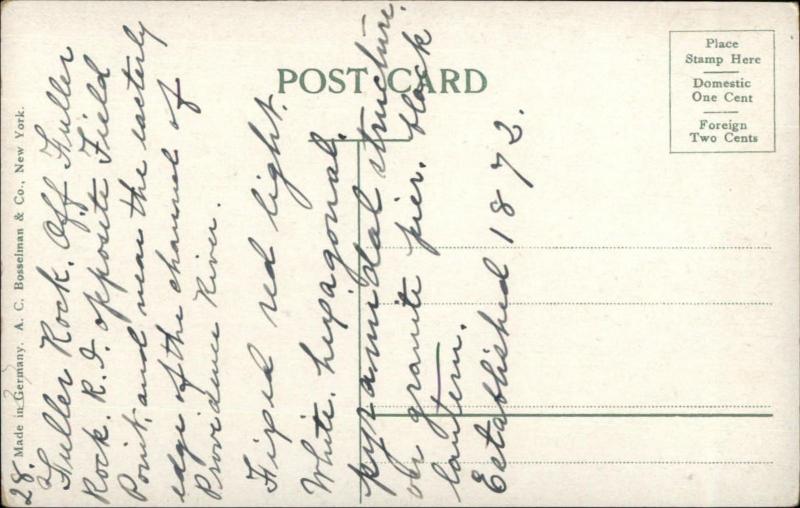 POST CARD
Place
Stamp Here
Domestic
One Cent
Foreign
Two Cents
Made in Germany. A. C. Bosselman & Co., New York.
28.
Fuller Rock. Off Fuller
Rock. R.I. opposite Field
Point, and near the easterly
edge of the channel of
Providence River.
Fixed red light.
White. hexagonal.
pyramidal structure.
on granite pier. black
lantern.
Established 1872.